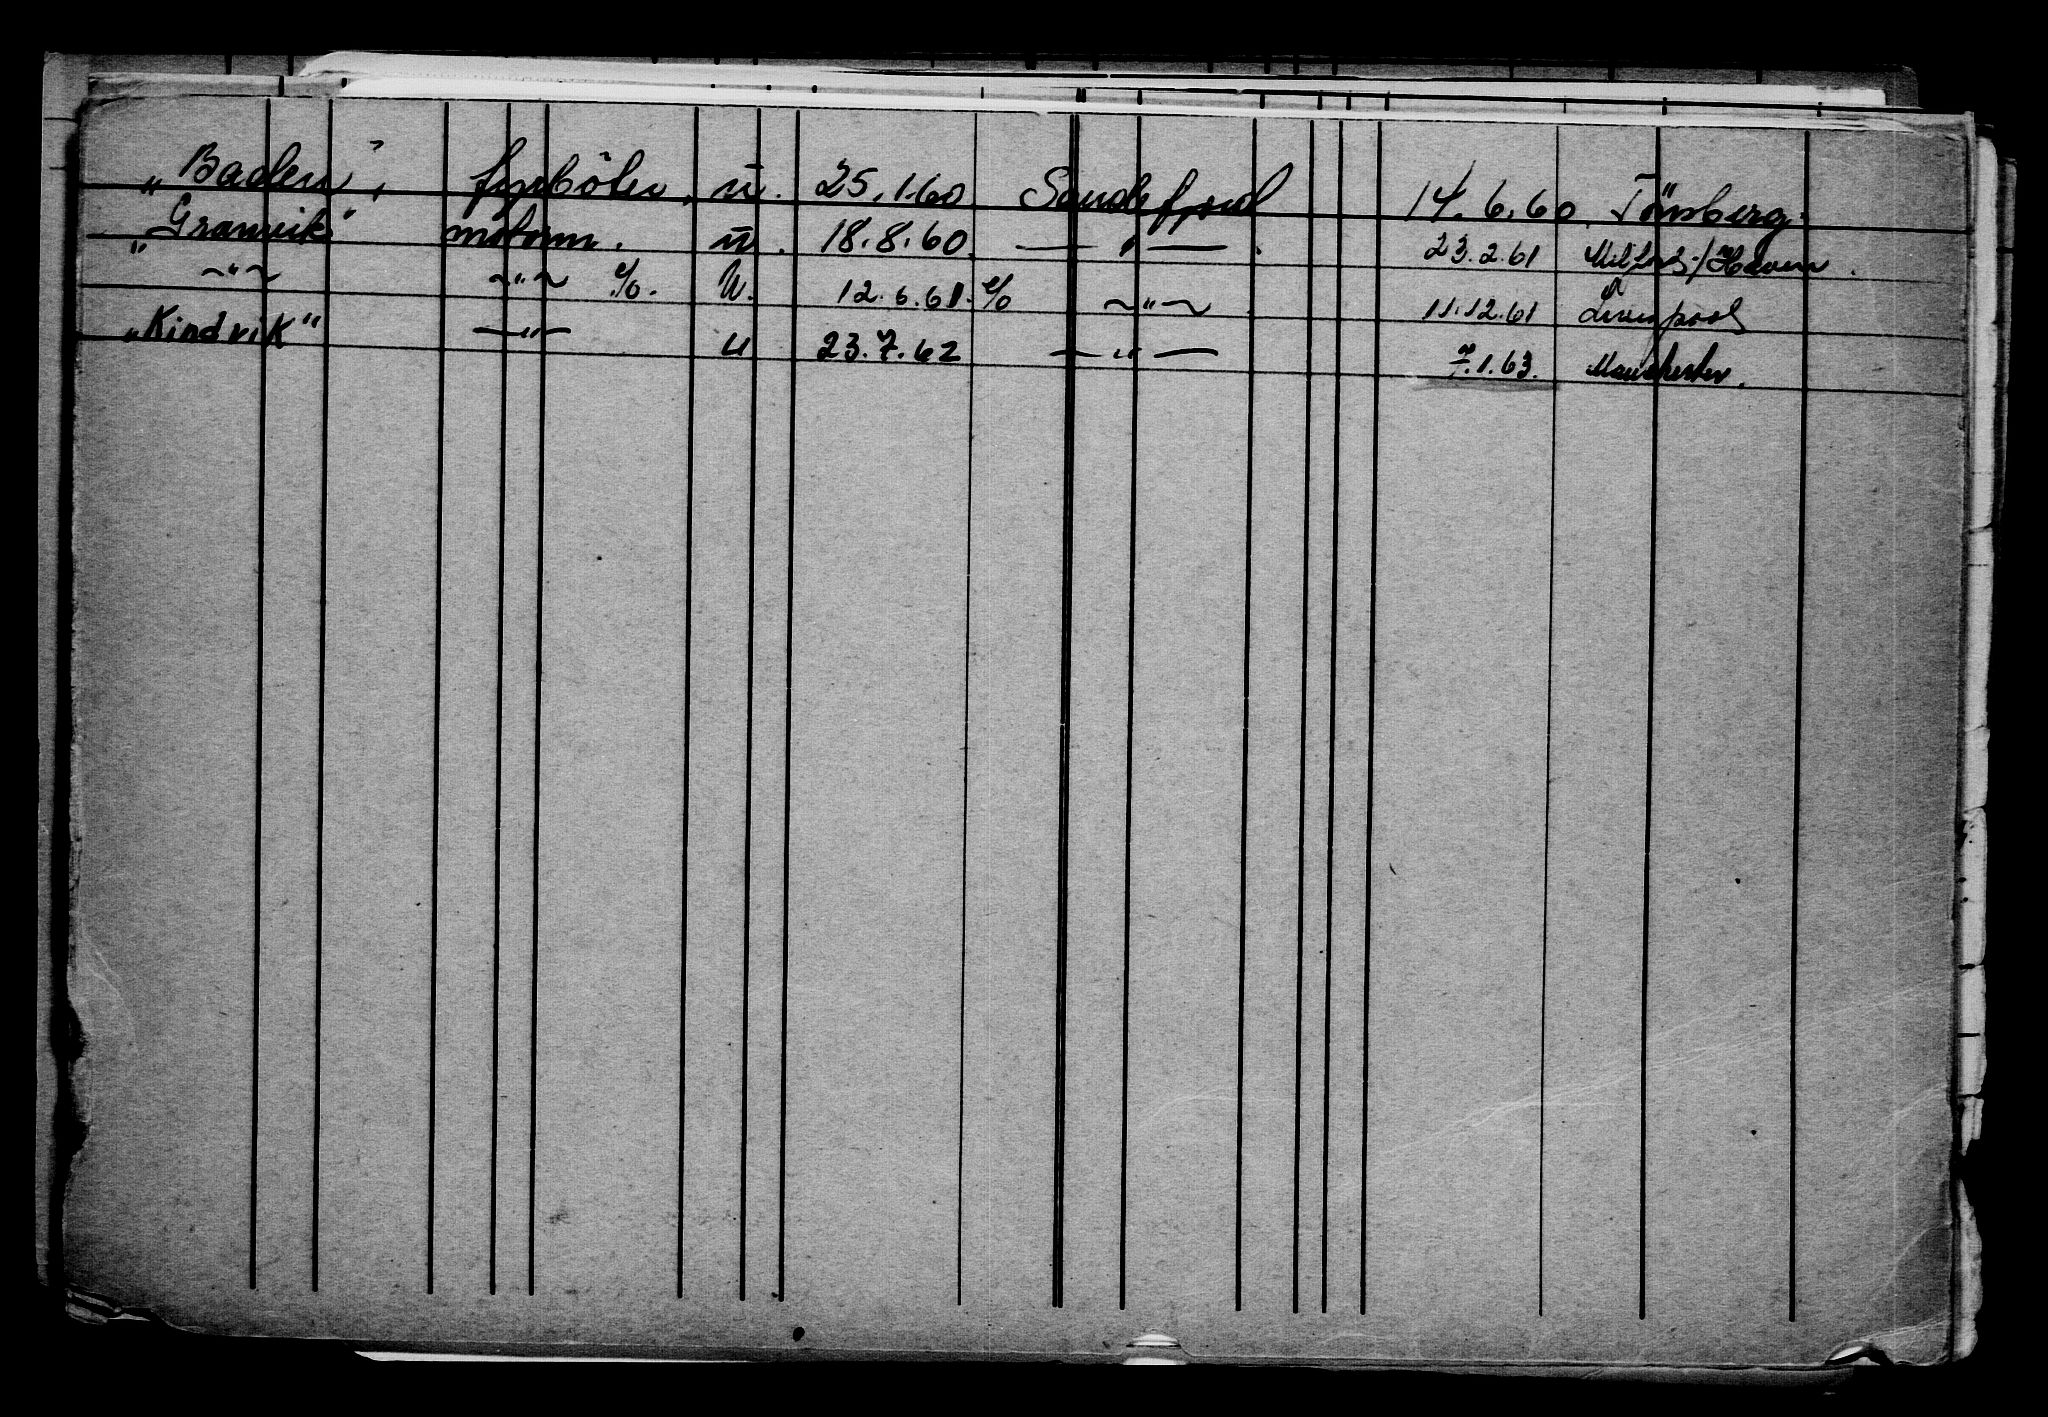 „Baden", fyrböter, u. 25.1.60 Sandefjord 14.6.60 Tönsberg.
„Granvik" motorm. u. 18.8.60 — " — 23.2.61 Milford/Haven.
~"~ ~"~ e/o. u. 12.6.61. e/o ~"~ 11.12.61 Liverpool
„Kindvik" —"— u 23.7.62 —"— 7.1.63. Manchester.